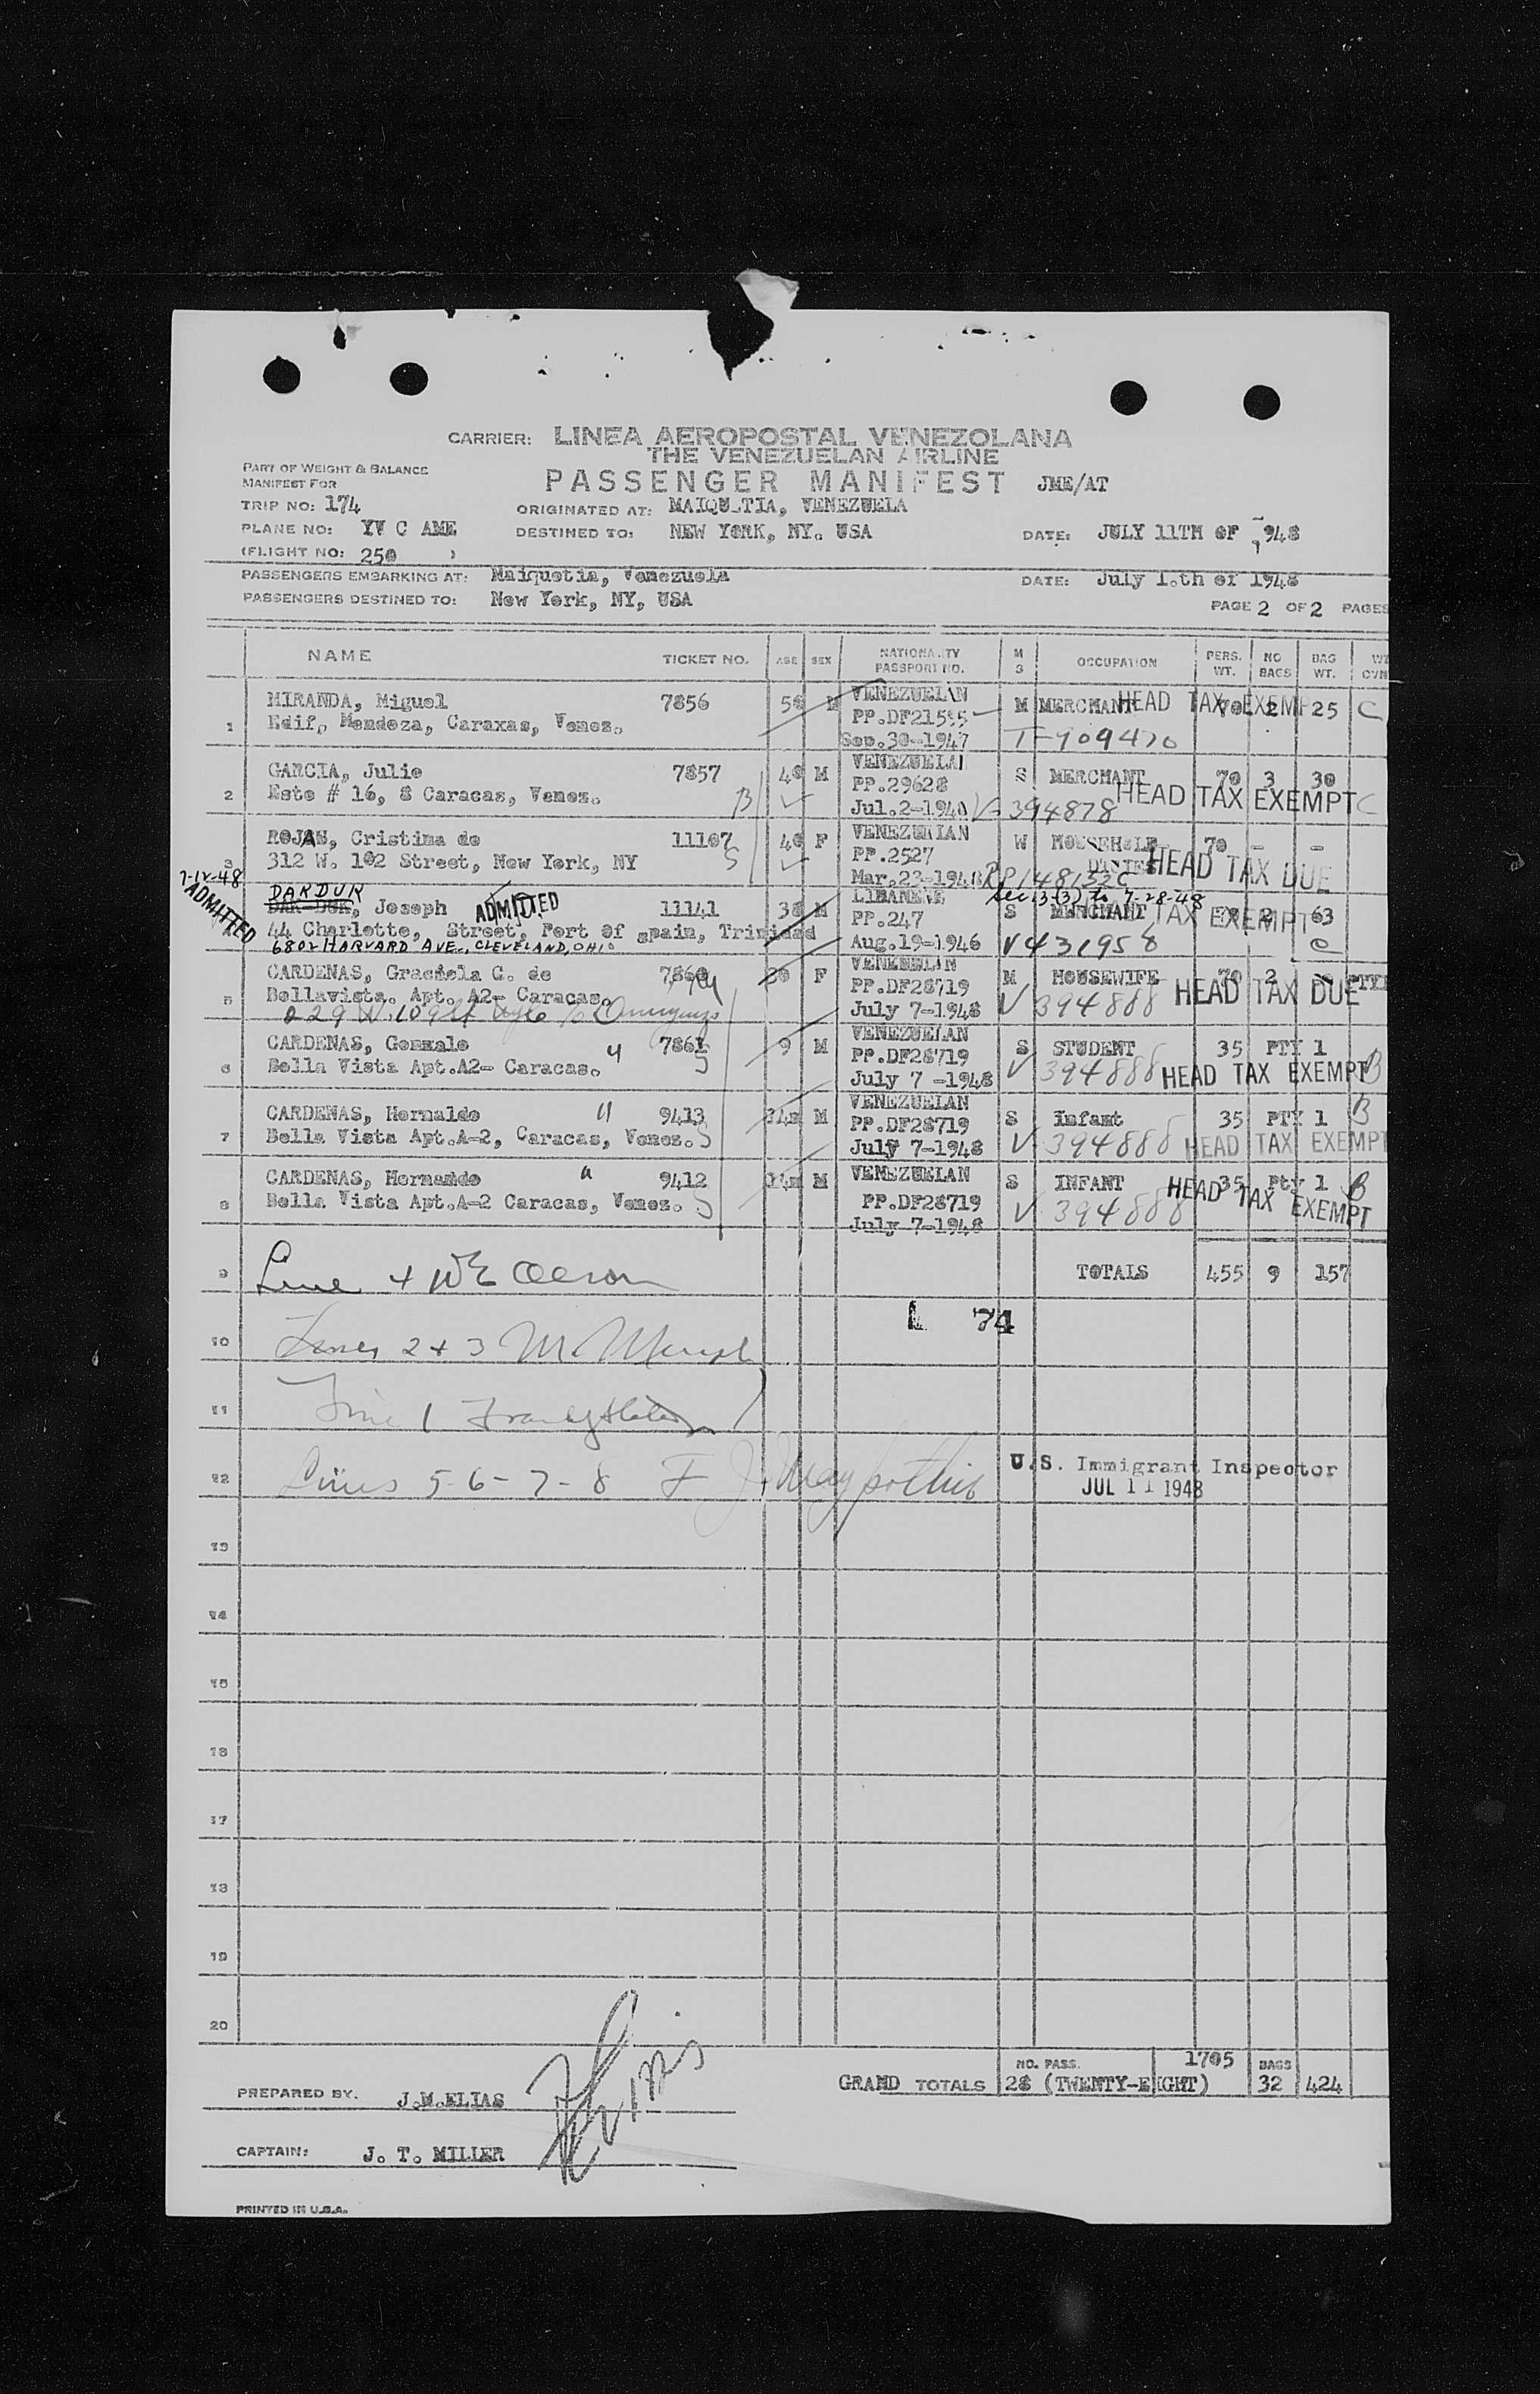 CARRIER: LINEA AEROPOSTAL VENEZOLANA
THE VENEZUELAN AIRLINE
PART OF WEIGHT & BALANCE
MANIFEST FOR
PASSENGER MANIFEST JME/AT
TRIP NO: 174 ORIGINATED AT: MAIQU_TIA, VENEZUELA
PLANE NO: YV C AME DESTINED TO: NEW YORK, NY. USA DATE: JULY 11TH OF 1948
(FLIGHT NO: 250 )
PASSENGERS EMBARKING AT: Maiquetia, Venezuela DATE: July 1.th of 1948
PASSENGERS DESTINED TO: New York, NY, USA
PAGE 2 OF 2 PAGES
NAME TICKET NO. AGE SEX NATIONALITY PASSPORT NO. M S OCCUPATION PERS. WT. NO BAGS BAG WT.
1 MIRANDA, Miguel 7856 50 M VENEZUELAN M MERCHANT HEAD TAX EXEMPT 70 2 25 C
Edif, Mendoza, Caraxas, Venez. PP.DF21595
Sep.30-1947 T-909470
2 GARCIA, Julio 7857 40 M VENEZUELAN S MERCHANT 70 3 30
Este # 16, 8 Caracas, Venez. B PP.29628 HEAD TAX EXEMPT C
Jul.2-1948 V-394878
3 ROJAS, Cristina de 11107 40 F VENEZUELAN W HOUSEHOLD 70 - -
312 W. 102 Street, New York, NY S PP.2527 DUTIES HEAD TAX DUE
Mar.23-1948 RP1481320
7-12-48 ADMITTED
DARDUK Sec 13(3) to 7-28-48
DAR-DUK, Joseph ADMITTED 11141 38 M LIBANESE S MERCHANT HEAD TAX EXEMPT 2 63
44 Charlotte, Street, Port Of Spain, Trinidad PP.247 C
6802 HARVARD AVE., CLEVELAND, OHIO Aug.19-1946 V431958
5 CARDENAS, Graciela C. de 7860 30 F VENEZUELAN M HOUSEWIFE 70 2
Bellavista. Apt. A2- Caracas. PP.DF28719 HEAD TAX DUE
229 W. 109th July 7-1948 V 394888
6 CARDENAS, Gonzalo 7861 9 M VENEZUELAN S STUDENT 35 PTY 1
Bella Vista Apt.A2- Caracas. S PP.DF28719 HEAD TAX EXEMPT B
July 7 -1948 V 394888
7 CARDENAS, Hernaldo 9413 14m M VENEZUELAN S Infant 35 PTY 1 B
Bella Vista Apt.A-2, Caracas, Venez. S PP.DF28719 HEAD TAX EXEMPT
July 7-1948 V 394888
8 CARDENAS, Hernando 9412 14m M VENEZUELAN S INFANT 35 Pty 1 B
Bella Vista Apt.A-2 Caracas, Venez. S PP.DF28719 HEAD TAX EXEMPT
July 7-1948 V 394888
9 Line 4 TOTALS 455 9 157
74
10 Lines 2 + 3
11 Line 1
12 Lines 5-6-7-8 U.S. Immigrant Inspector
JUL 11 1948
13
14
15
16
17
18
19
20
NO. PASS. 1705 BAGS
GRAND TOTALS 28 (TWENTY-EIGHT) 32 424
PREPARED BY. J.M.ELIAS
CAPTAIN: J. T. MILLER
PRINTED IN U.S.A.